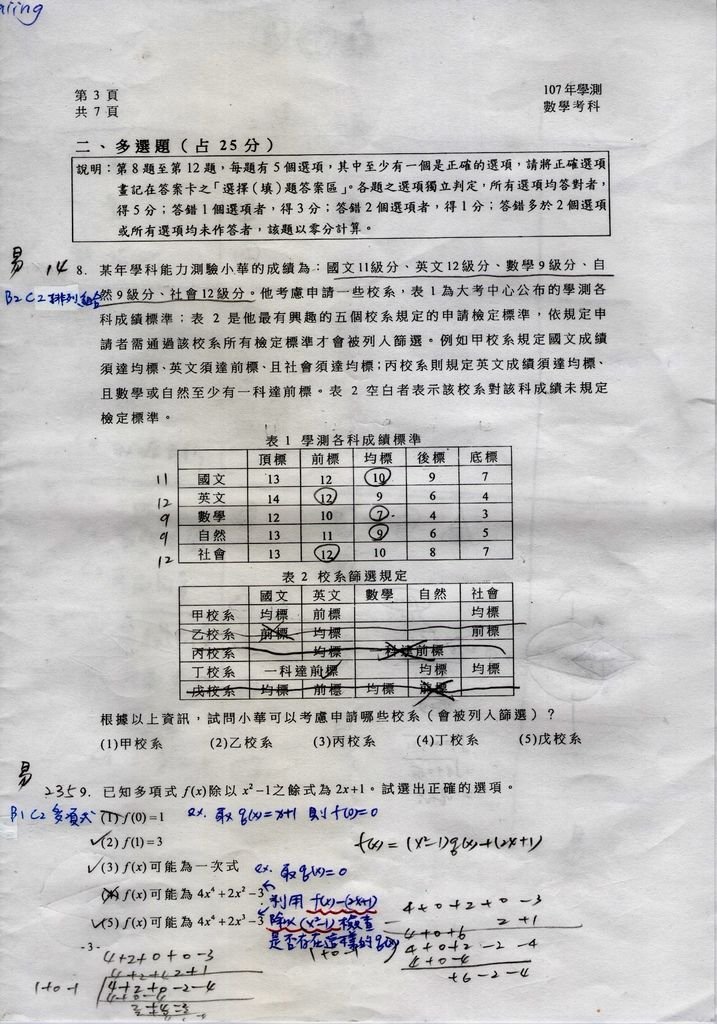 第 3 頁
共 7 頁
107 年學測
數學考科
二、多選題（占 25 分）
說明：第 8 題至第 12 題，每題有 5 個選項，其中至少有一個是正確的選項，請將正確選項
畫記在答案卡之「選擇（填）題答案區」。各題之選項獨立判定，所有選項均答對者，
得 5 分；答錯 1 個選項者，得 3 分；答錯 2 個選項者，得 1 分；答錯多於 2 個選項
或所有選項均未作答者，該題以零分計算。
易 14 8. 某年學科能力測驗小華的成績為：國文11級分、英文12級分、數學9級分、自
B2C2排列組合 然9級分、社會12級分。他考慮申請一些校系，表 1 為大考中心公布的學測各
科成績標準；表 2 是他最有興趣的五個校系規定的申請檢定標準，依規定申
請者需通過該校系所有檢定標準才會被列入篩選。例如甲校系規定國文成績
須達均標、英文須達前標、且社會須達均標；丙校系則規定英文成績須達均標、
且數學或自然至少有一科達前標。表 2 空白者表示該校系對該科成績未規定
檢定標準。
表 1 學測各科成績標準
頂標 前標 均標 後標 底標
11 國文 13 12 10 9 7
12 英文 14 12 9 6 4
9 數學 12 10 7 4 3
9 自然 13 11 9 6 5
12 社會 13 12 10 8 7
表 2 校系篩選規定
國文 英文 數學 自然 社會
甲校系 均標 前標 均標
乙校系 前標 均標 前標
丙校系 均標 一科達前標
丁校系 一科達前標 均標 均標
戊校系 均標 前標 均標 前標
根據以上資訊，試問小華可以考慮申請哪些校系（會被列入篩選）？
(1)甲校系 (2)乙校系 (3)丙校系 (4)丁校系 (5)戊校系
易 235 9. 已知多項式 f(x)除以 x²−1之餘式為 2x+1。試選出正確的選項。
B1C2 多項式 (1) f(0)=1 ex. 取 q(x)=x+1 則 f(0)=0
(2) f(1)=3 f(x)=(x²-1)q(x)+(2x+1)
(3) f(x)可能為一次式 ex. 取 q(x)=0
(4) f(x)可能為 4x⁴+2x²−3
利用 f(x)-(2x+1)
(5) f(x)可能為 4x⁴+2x³−3 除以 (x²-1) 檢查
是否存在這樣的 q(x)
-3-
4+0+2+0-3
2+1
4+0+6
1+0-1 4+0+2-2-4
4+0-4
+6-2-4
4+2+0+0-3
1+0-1 4+2+0-2-4